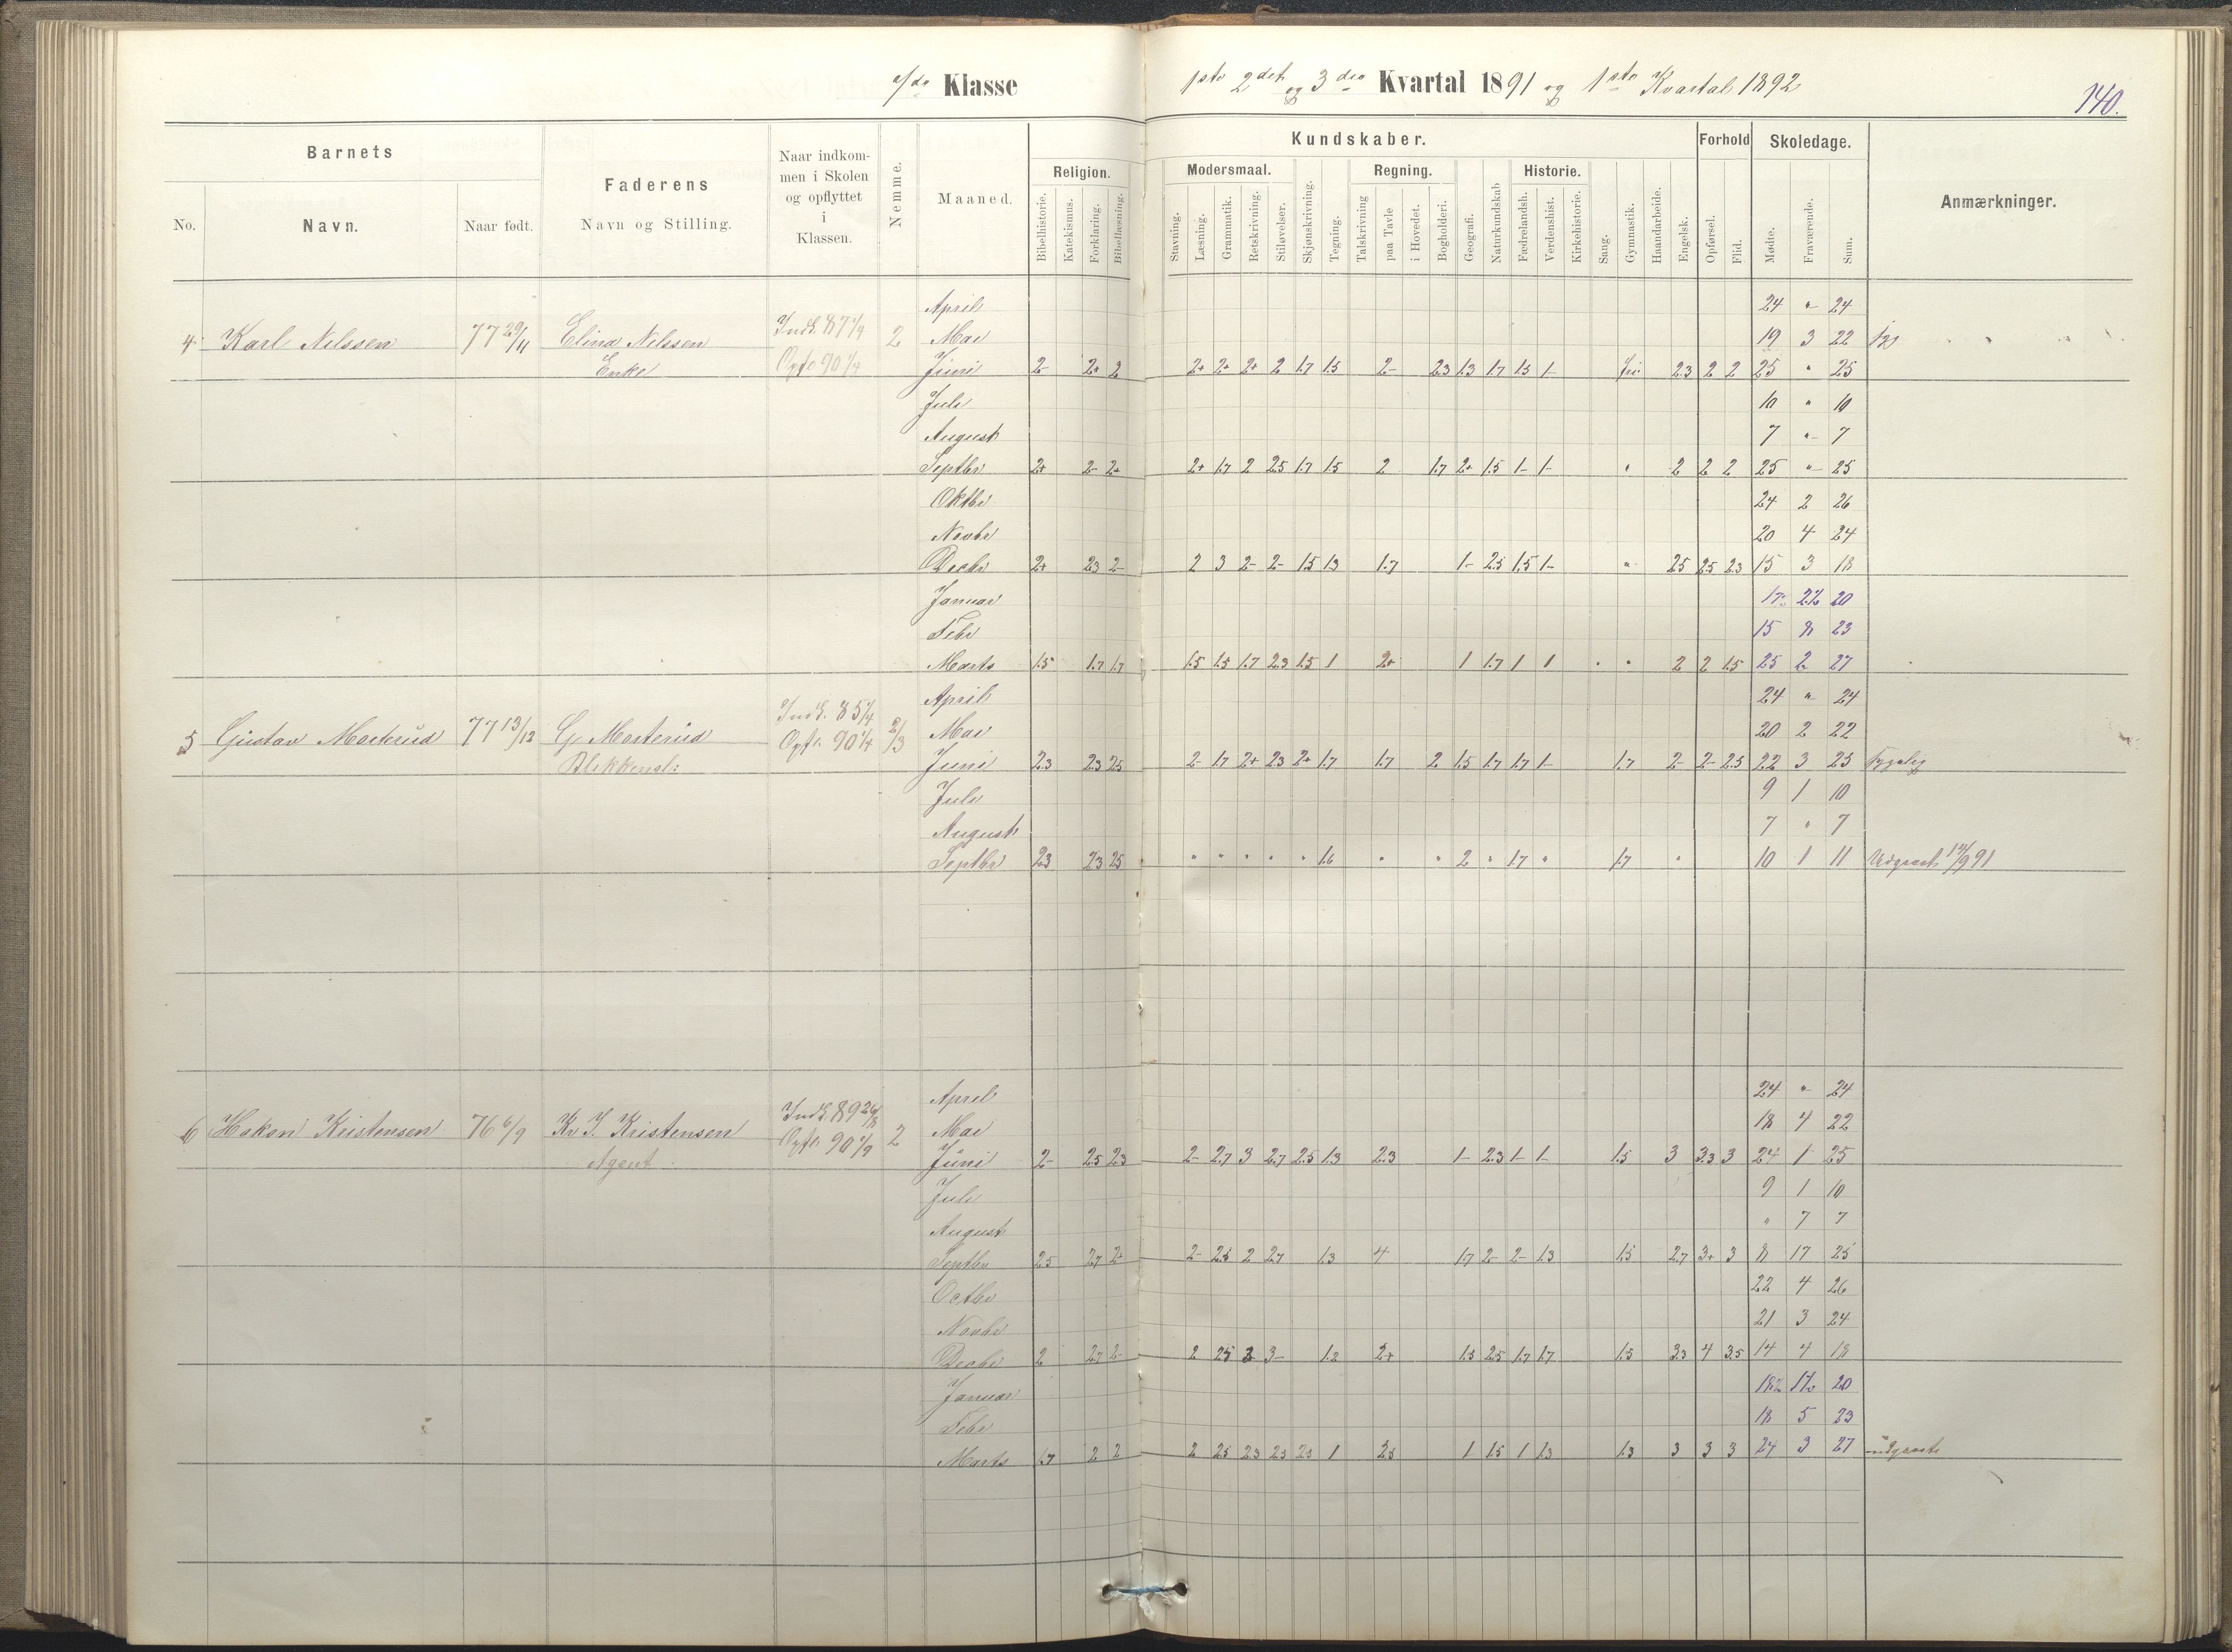 Klasse
1ste 2det og 3die Kvartal 1891 og 1ste Kvartal 1892
140.
Barnets
Faderens
Naar indkom-
men i Skolen
og opflyttet
i
Klassen.
Nemme.
Maaned.
Kundskaber.
Forhold
Skoledage.
Anmærkninger.
No.
Navn.
Naar født.
Navn og Stilling.
Religion.
Modersmaal.
Regning.
Historie.
Bibelhistorie.
Katekismus.
Forklaring.
Bibellæsning.
Stavning.
Læsning.
Grammatik.
Retskrivning.
Stiløvelser.
Skjønskrivning.
Tegning.
Talskrivning
paa Tavle
i Hovedet.
Bogholderi.
Geografi.
Naturkundskab
Fædrelandsh.
Verdenshist.
Kirkehistorie.
Sang.
Gymnastik.
Haandarbeide.
Engelsk.
Opførsel.
Flid.
Mødte.
Fraværende.
Sum.
April 24 " 24
4 Karl Nilssen 77 29/11 Elina Nilssen Indk. 87 1/9 2 Mai 19 3 22
Enke Opfl. 90 1/4 Juni 2- 2+ 2 2+ 2+ 2+ 2 1.7 1.5 2- 2.3 1.3 1.7 1.5 1- fri 2.3 2 2 25 " 25
Juli 10 " 10
August 7 " 7
Septbr 2+ 2- 2+ 2+ 1.7 2 2.5 1.7 1.5 2 1.7 2+ 1.5 1- 1- " 2 2 2 25 " 25
Oktbr 24 2 26
Novbr 20 4 24
Decbr 2+ 2.3 2- 2 3 2- 2- 1.5 1.3 1.7 1- 2.5 1.5 1- " 2.5 2.5 2.3 15 3 18
Januar 20
Febr 15 8 23
Marts 1.5 1.7 1.7 1.5 1.5 1.7 2.3 1.5 1 2+ 1 1.7 1 1 " " 2 2 1.5 25 2 27
April 24 " 24
5 Gustav Mosterud 77 13/12 G. Mosterud Indk. 85 1/4 2/3 Mai 20 2 22
Blikkensl: Opfl. 90 1/4 Juni 2.3 2.3 2.5 2- 1.7 2+ 2.3 2+ 1.7 1.7 2 1.5 1.7 1.7 1- 1.7 2- 2- 2.5 22 3 25 Sygelig
Juli 9 1 10
August 7 " 7
Septbr 2.3 2.3 2.5 " " " " " 1.6 " " 2 " 1.7 " 1.7 " 10 1 11 Udgaaet 14/9 91
April 24 " 24
6 Hakon Kristensen 76 6/9 Kr. J. Kristensen Indk. 89 26/8 2 Mai 18 4 22
Agent Opfl. 90 1/9 Juni 2- 2.5 2.3 2- 2.7 3 2.7 2.5 1.3 2.3 1- 2.3 1- 1- 1.5 3 3.3 3 24 1 25
Juli 9 1 10
August " 7 7
Septbr 2.5 2.7 2+ 2- 2.5 2 2.7 1.3 4 1.7 2- 2- 1.3 1.5 2.7 3+ 3 8 17 25
Octbr 22 4 26
Novbr 21 3 24
Decbr 2 2.7 2- 2 2.5 3 3- 1.2 2+ 1.5 2.5 1.7 1.7 1.5 3.3 4 3.5 14 4 18
Januar 18½ 1½ 20
Febr 18 5 23
Marts 1.7 2 2 2 2.5 2.3 2.3 2.3 1 2.5 1 1.5 1 1.3 1.3 3 3 3 24 3 27 udgaaet